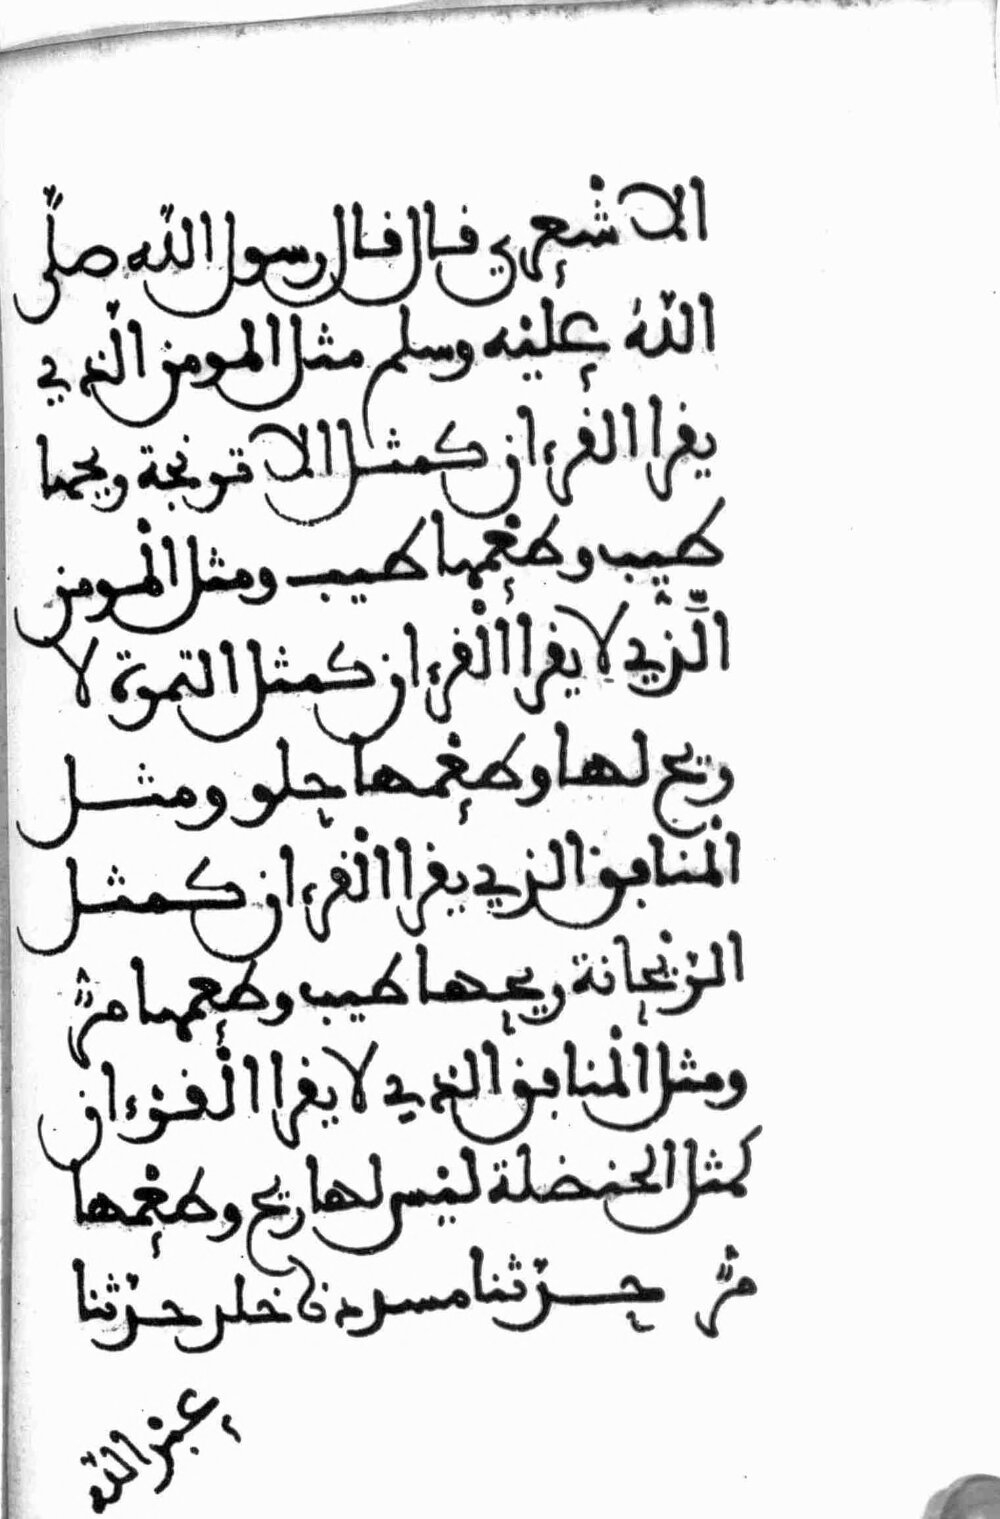 الاشعري قال قال رسول الله صلى
الله عليه وسلم مثل المومن الذي
يقرا القرءان كمثل الاترنجة ريحها
طيب وطعمها طيب ومثل المومن
الذي لا يقرا القرءان كمثل التمرة لا
ريح لها وطعمها حلو ومثل
المنافق الذي يقرا القرءان كمثل
الريحانة ريحها طيب وطعمها مر
ومثل المنافق الذي لا يقرا القرءان
كمثل الحنضلة ليس لها ريح وطعمها
مر حدثنا مسدد نا خلد حدثنا
عبد الله